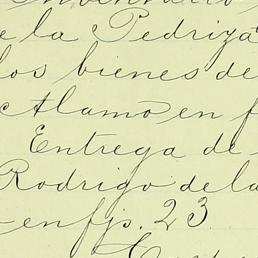 Inventario
e la Pedriza
los bienes de
Alamo en f
Entrega de
Rodrigo de la
en fjs. 23